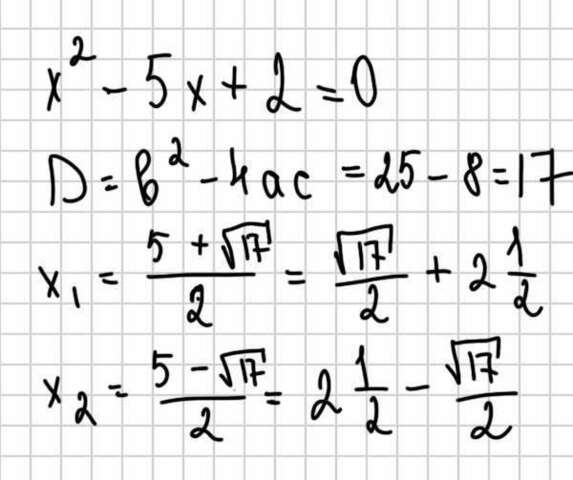 x² - 5x + 2 = 0
D = b² - 4ac = 25 - 8 = 17
x₁ = (5 + √17)/2 = √17/2 + 2 1/2
x₂ = (5 - √17)/2 = 2 1/2 - √17/2